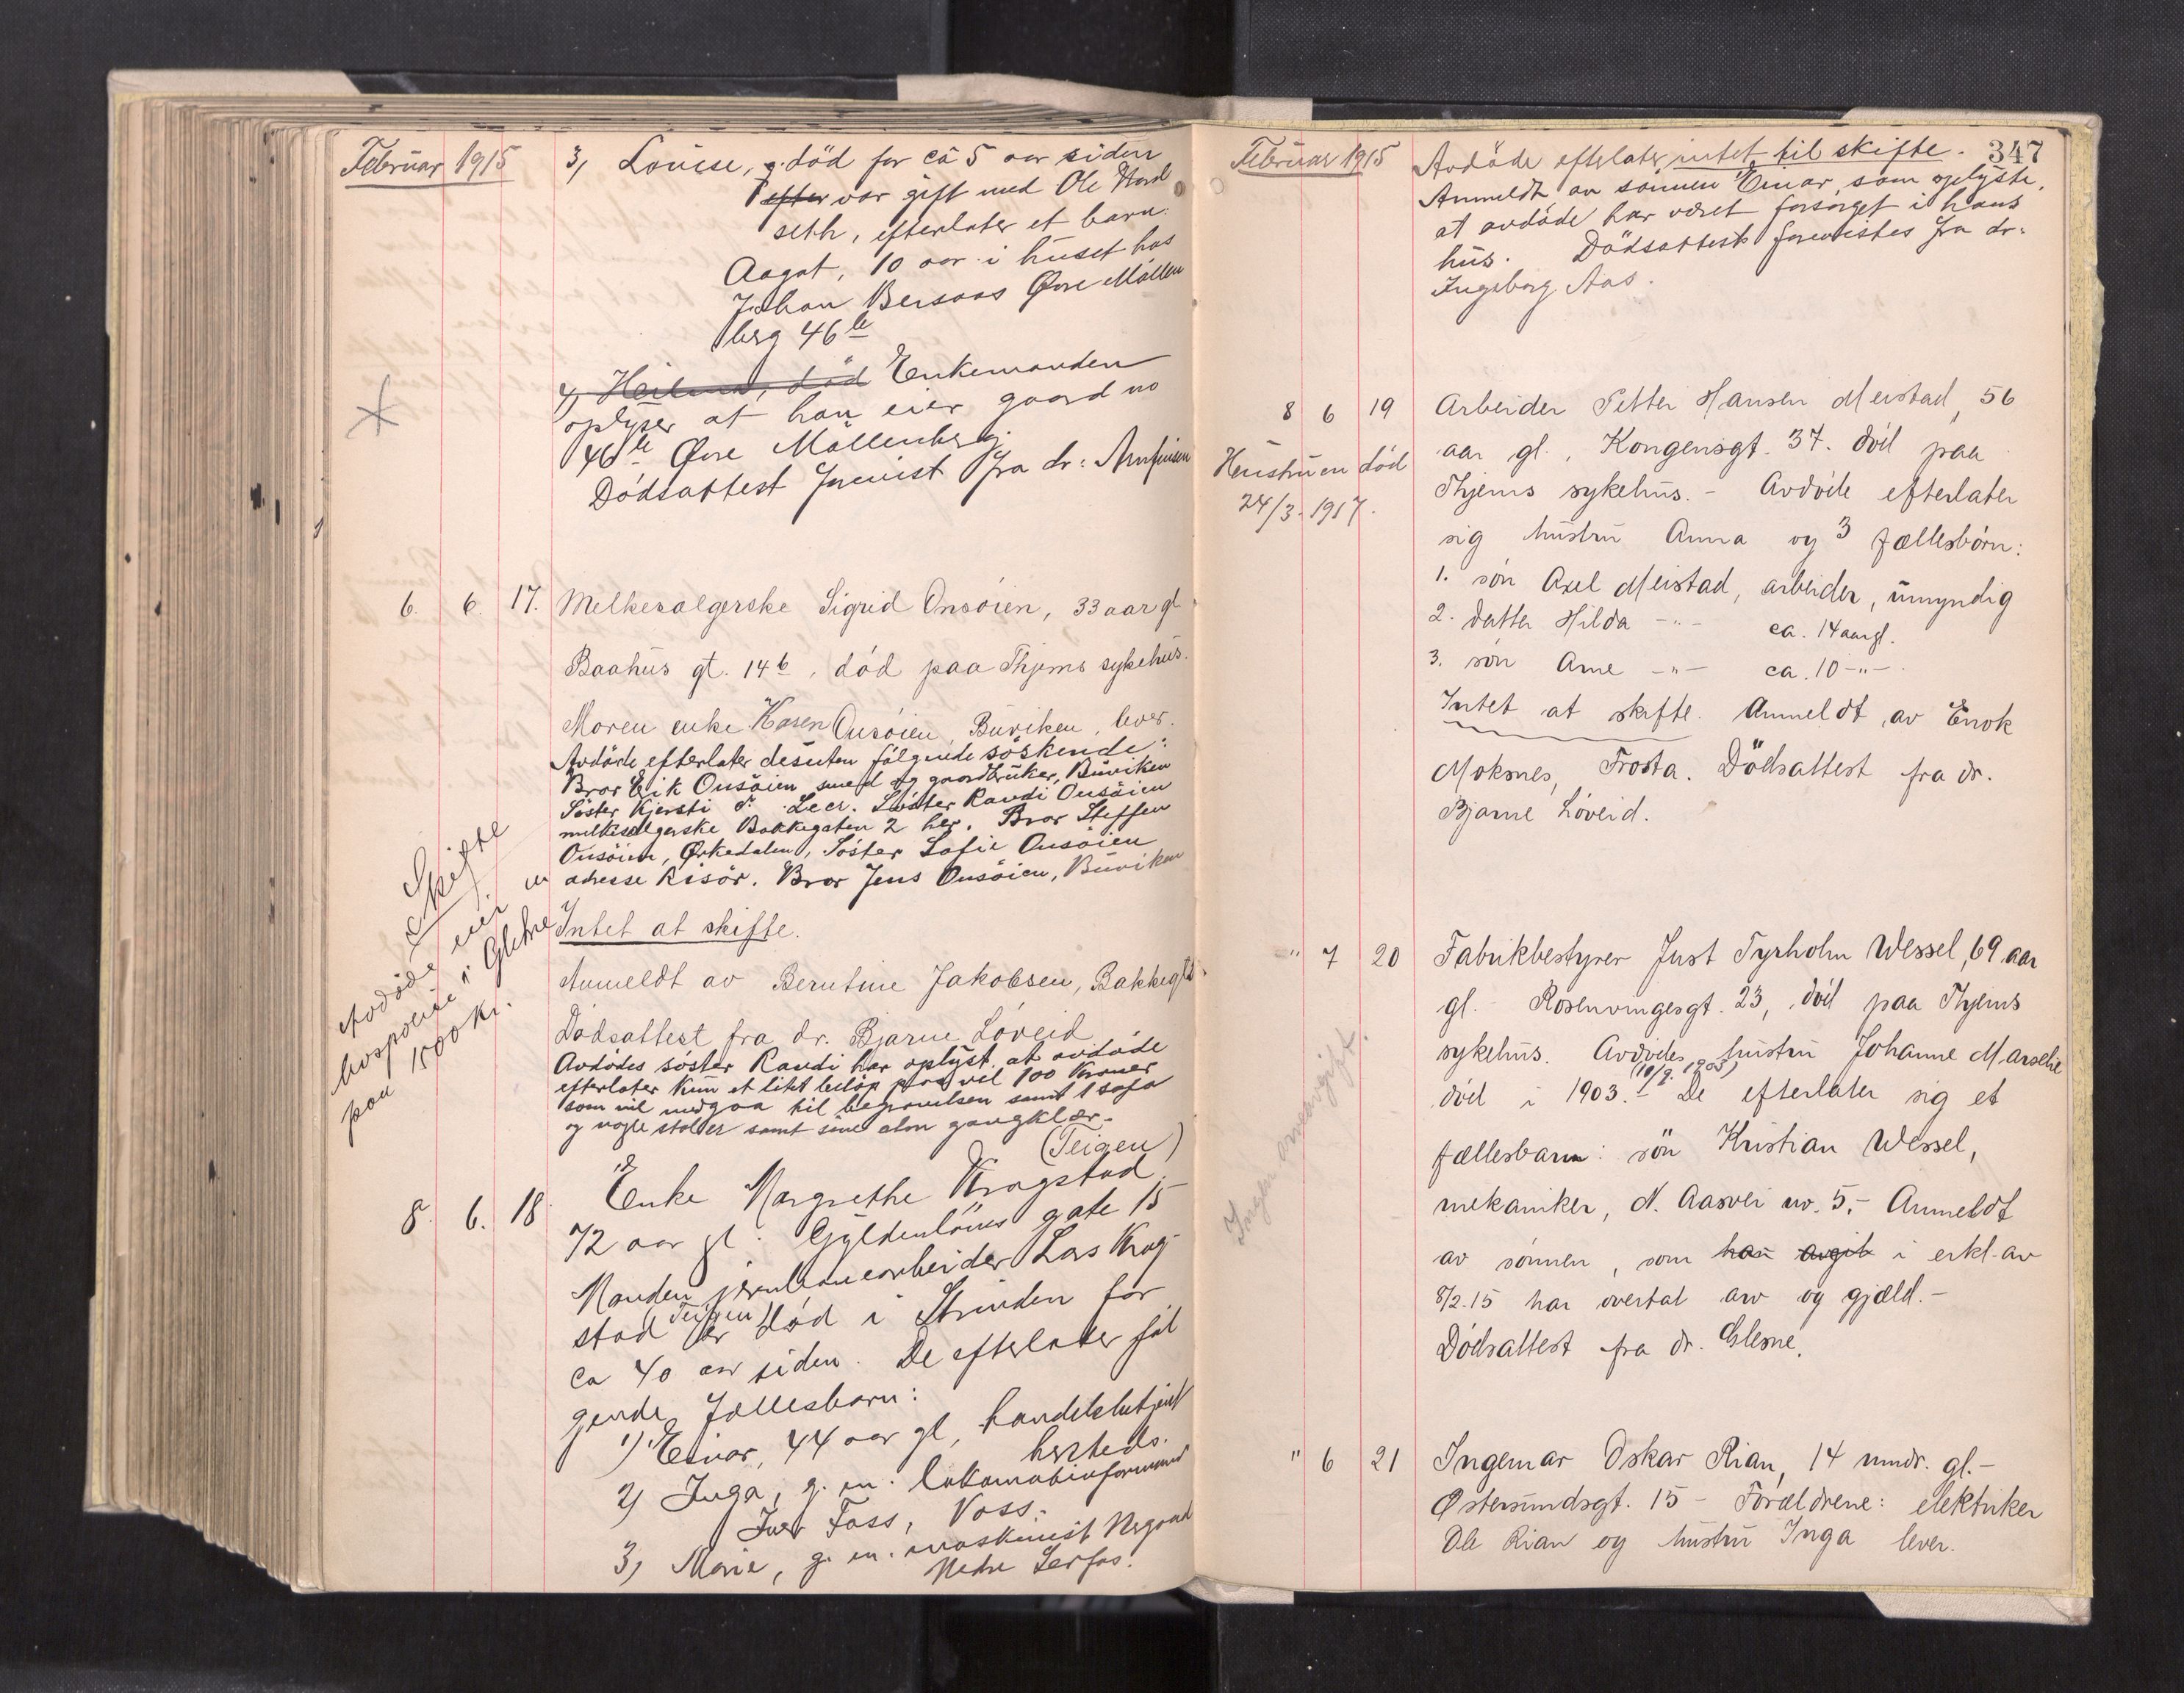 Februar 1915
3) Louise, g. död for ca 5 aar siden
efter var gift med Ole Nord
seth, efterlater et barn:
Aagot, 10 aar i huset hos
Johan Bersaas Øvre Möllen
berg 46 b
4) död Enkemanden
oplyser at han eier gaard no
46 b Øvre Möllenberg.
Dödsattest forevist fra dr: Arnfinsen
6. 6. 17. Melkesalgerske Sigrid Onsöien, 33 aar gl
Baahus gt. 14 b, död paa Thjems sykehus.
Moren enke Karen Onsöien, Buviken, lever.
Avdöde efterlater desuten fölgende söskende:
Bror Erik Onsöien smed og gaardbruker, Buviken
Söster Kjersti Leer. Söster Randi Onsöien
melkesalgerske Bakkegaten 2 her. Bror Steffen
Onsöien, Ørkedalen, Söster Sofie Onsöien
adresse Risör. Bror Jens Onsöien, Buviken
Intet at skifte.
Skifte
Avdöde eier en
livspolice i "Glitne
paa 1500 kr.
Anmeldt av Berntine Jakobsen, Bakkegt 2.
Dödsattest fra dr. Bjarne Löveid
Avdödes söster Randi har oplyst at avdöde
efterlater kun et litet belöp paa vel 100 kroner
som vil medgaa til begravelsen samt 1 sofa
og nogle stoler samt sine alm gangklær.
(Teigen)
8. 6. 18 Enke Margrethe Kragstad,
72 aar gl. Gyldenlöves gate 15
Manden jernbanearbeider Lars Krag-
stad (Teigen) er död i Strinden for
ca 40 aar siden. De efterlater föl
gende fællesbarn:
1) Einar, 44 aar gl, handelsbetjent
hersteds.
2) Inga, g. m. lokomotivformand
Iver Foss, Voss.
3) Marie, g. m. maskinist Nygaard
Nedre Leirfos.
Februar 1915
347
Avdöde efterlater intet til skifte.
Anmeldt av sönnen Einar, som oplyste,
at avdöde har været forsörget i hans
hus. Dödsattest forevistes fra dr:
Ingeborg Aas.
8 6 19 Arbeider Petter Hansen Meistad, 56
aar gl., Kongensgt. 37. död paa
Thjems sykehus. - Avdöde efterlater
sig hustru Anna og 3 fællesbörn:
Hustruen död
24/3-1917.
1. sön Axel Meistad, arbeider, umyndig
2. datter Hilda -"- ca. 14 aar gl.
3. sön Arne -"- ca. 10 -"-
Intet at skifte. Anmeldt av Enok
Moksnes, Frosta. Dödsattest fra dr.
Bjarne Löveid.
" 7 20 Fabrikbestyrer Just Tyrholm Wessel, 69 aar
gl. Rosenvingesgt. 23, död paa Thjems
sykehus. Avdödes hustru Johanne Marselie
död i 1903. (10/9. 1903) De efterlater sig et
fællesbarn: sön Kristian Wessel,
mekaniker, N. Aasvei no. 5. - Anmeldt
av sönnen, som har avgit i erkl. av
8/2.15 har overtat arv og gjæld. -
Dödsattest fra dr. Glesne.
Ingen arveavgift.
" 6 21 Ingemar Oskar Rian, 14 mndr. gl. -
Østersundsgt. 15 - Forældrene: elektriker
Ole Rian og hustru Inga lever.